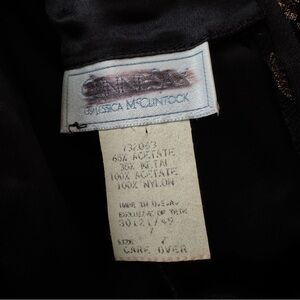 GUNNE SAX
BY JESSICA McCLINTOCK
732063
65% ACETATE
35% METAL
100% ACETATE
100% NYLON
MADE IN U.S.A.
EXCLUSIVE OF TRIM
SIZE 7
CARE OVER